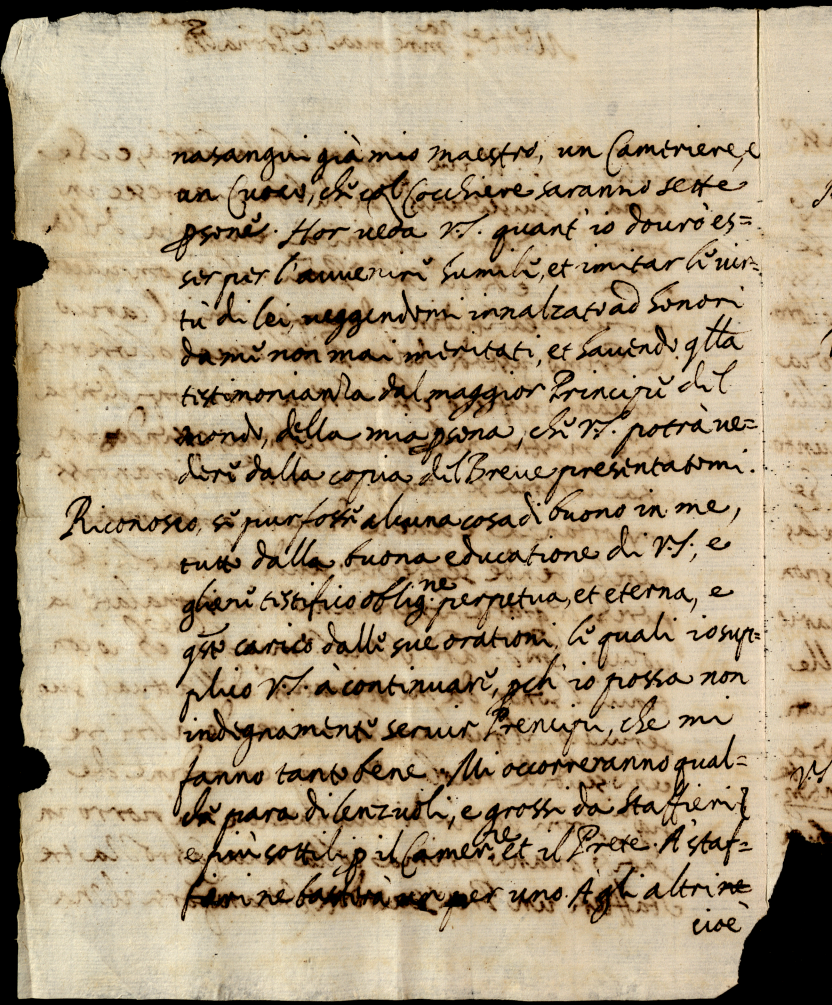 nasangui già mio maestro, un Cameriere, e
un Cuoco, che col Cocchiere saranno sette
psone. Hor veda V.S. quant' io dourò es=
ser per l'auuenire humile, et imitar le vir=
tù di lei, veggendomi innalzato ad honori
da me non mai meritati, et hauendo qlla
testimonianza dal maggior Principe del
mondo, della mia psona, che V.S. potrà ve=
dere dalla copia del Breue presentatomi.
Riconosco, se pur fosse alcuna cosa di buono in me,
tutto dalla buona educatione di V.S., e
gliene testifico oblig.ne perpetua, et eterna, e
qsto carico dalle sue orationi, le quali io sup=
plico V.S. à continuare, pch' io possa non
indegnamente seruir Prencipi, che mi
fanno tanto bene. Mi occorreranno qual=
che para di lenzuoli, e grossi da staffieri
e più sottili p il Camer.re et il Prete. A' staf=
fieri ne basterà un per uno. A gli altri ne
cioè